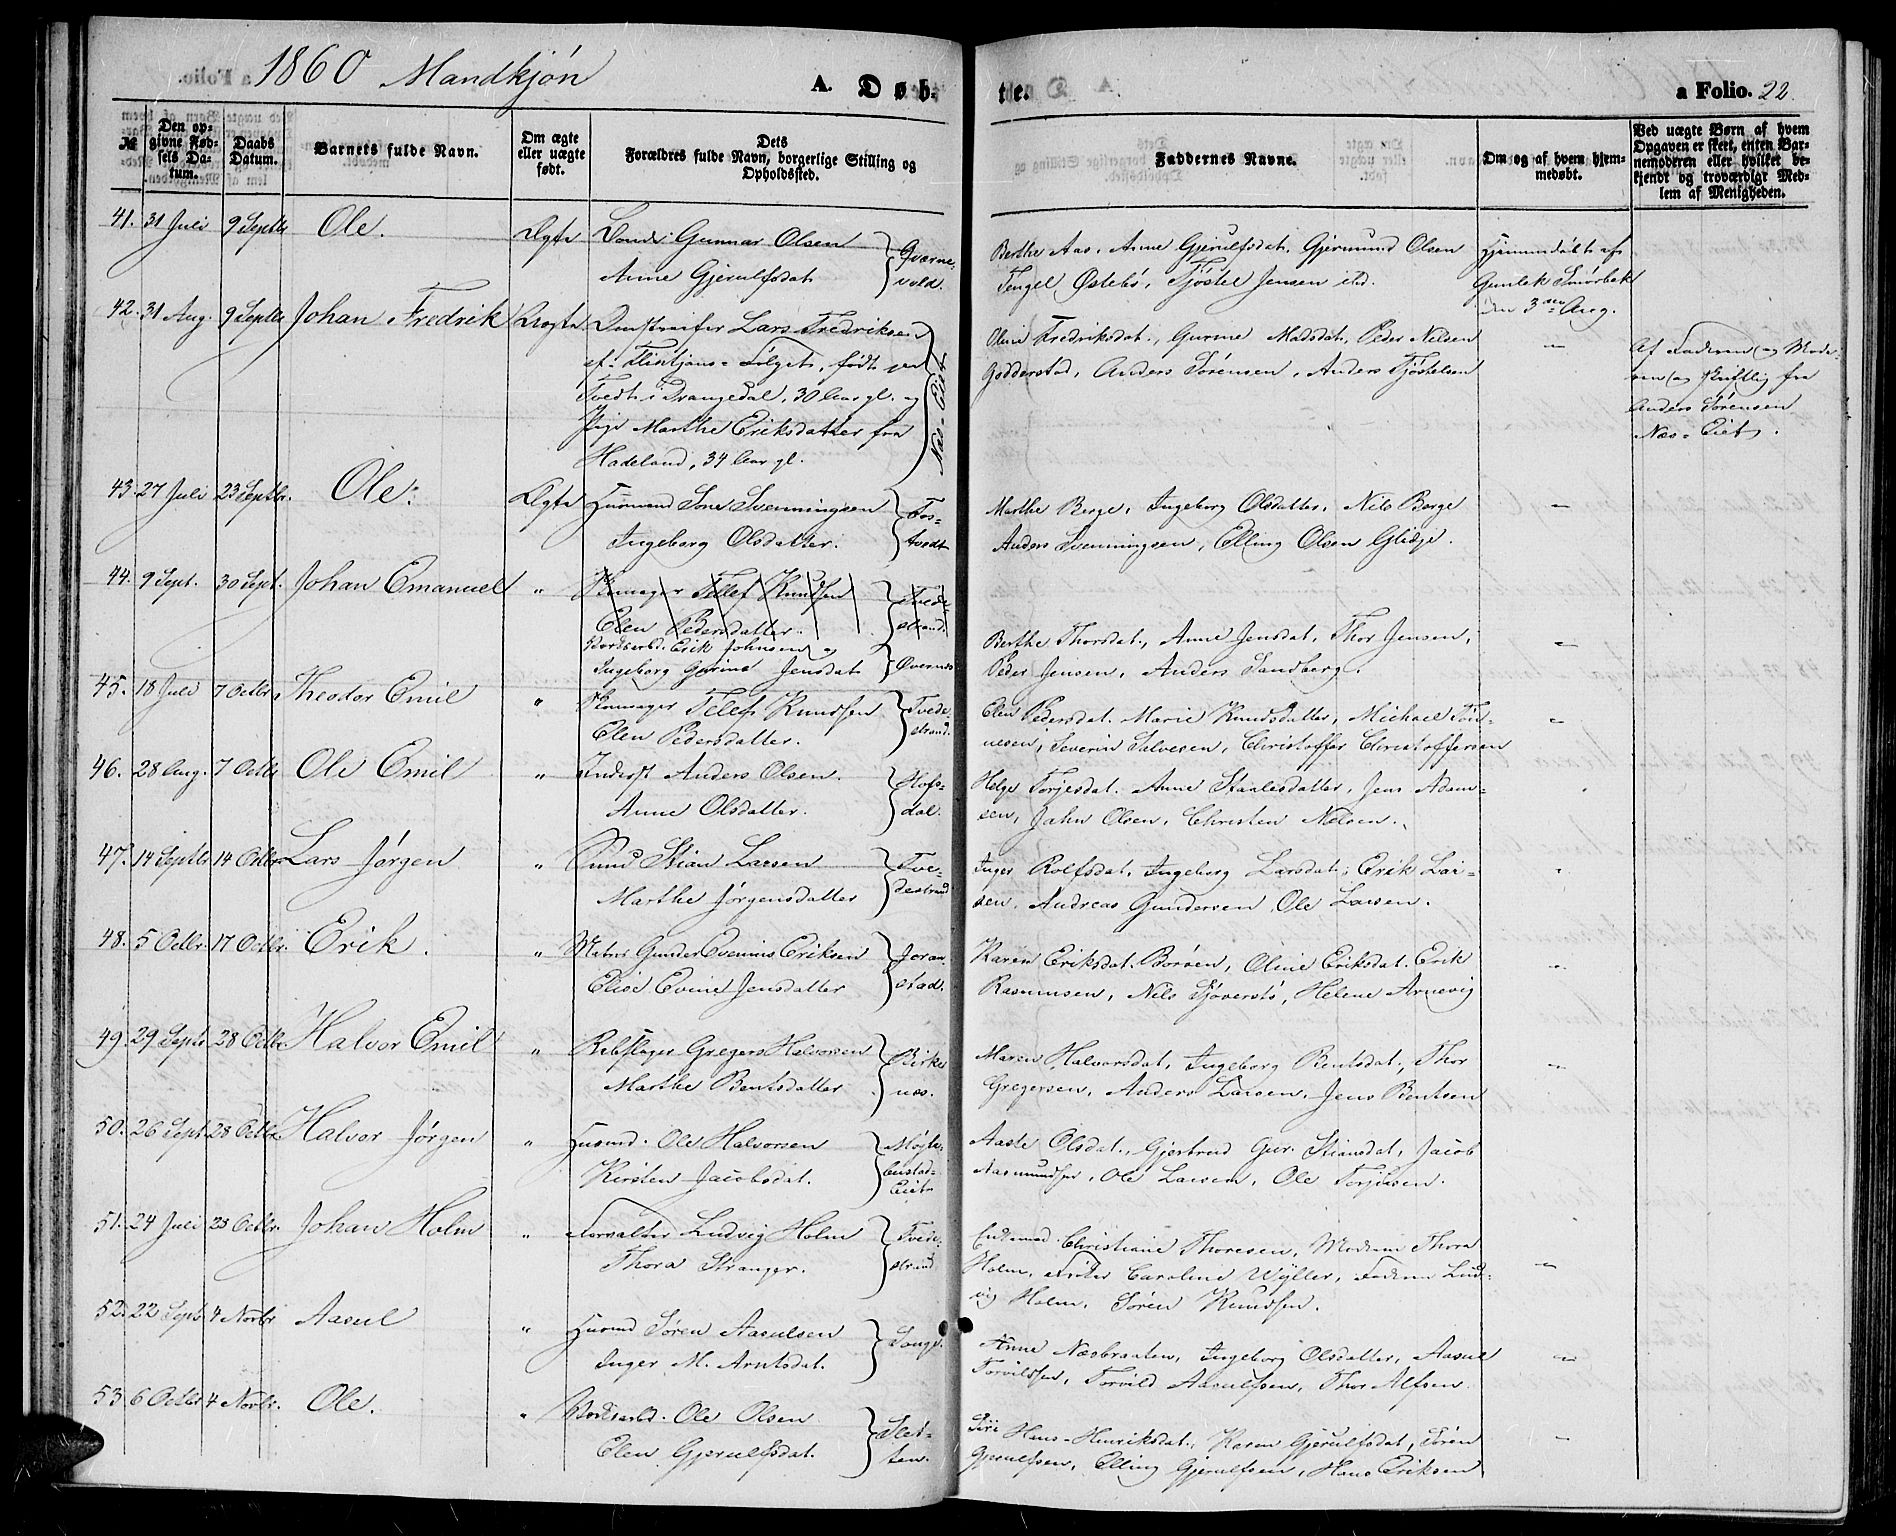 1860 Mandkjøn A. Døb- te. a Folio. 22.
№
Den op-
givne Fød-
sels Da-
tum.
Daabs
Datum.
Barnets fulde Navn.
Om ægte
eller uægte
født.
Dets
Forældres fulde Navn, borgerlige Stilling og
Opholdssted.
Faddernes Navne.
Om og af hvem hjem-
medøbt.
Ved uægte Børn af hvem
Opgaven er skeet, enten Bar-
nemoderen eller hvilket be-
kjendt og troværdigt Med-
lem af Menigheden.
41. 31 Juli 9 Septbr Ole. Ægte Gunnar Olsen
Anne Gjerulfsdat.
Berthe Aas, Anne Gjerulfsdat, Gjermund Olsen
Tengel Østebø, Tjøstel Jensen ibd.
Hjemmedøbt af
Gunlek Smørbek
den 3die Aug.
42. 31 Aug. 9 Septbr Johan Fredrik Uægte Lars Fredriksen
født paa
Tvedt i Drangedal, 30 Aar gl. og
Pige Marthe Eriksdatter fra
Hadeland, 34 Aar gl.
Næs-Eiet
Oline Fredriksdat., Gurine Madsdat, Peder Nilsen
Godderstad, Anders Sørensen, Anders Tjøstelsen
Af Faderen og Mode-
ren og Skriftlig fra
Anders Sørensen
Næs-Eiet.
43. 27 Juli 23 Septbr. Ole. Ægte Huusmand Sone Svenningsen
Ingeborg Olsdatter.
Fos-
tvedt
Marthe Berge, Ingeborg Olsdatter, Nils Berge
Anders Svenningsen, Elling Olsen Glidje.
44. 9 Sept. 30 Sept. Johan Emanuel " Skomager Tellef Knudsen
Elen Pedersdatter.
Tvede-
strand.
Bordsarbd. Erik Johnsen og
Ingeborg Gurine Jensdat
Berthe Thorsdat, Anne Jensdat, Thor Jensen,
Peder Jensen, Anders Sandberg.
45. 18 Juli 7 Octbr. Theodor Emil " Skomager Tellef Knudsen
Elen Pedersdatter.
Tvede-
strand.
Elen Pedersdat. Marie Knudsdatter, Michael Tøn-
nesen, Severin Salvesen, Christoffer Christoffersen
46. 28 Aug. 7 Octbr Ole Emil " Inderst Anders Olsen.
Anne Olsdatter.
Hofs-
dal.
Helge Torjesdat. Anne Staalesdatter, Jens Adam-
sen, Jahn Olsen, Christen Nelsen.
47. 14 Septbr 14 Octbr Lars Jørgen " Stian Larsen
Marthe Jørgensdatter
Tve-
destrand
Inger Rolfsdat, Ingeborg Larsdat, Erik Lar-
sen, Andreas Gundersen, Ole Larsen.
48. 5 Octbr. 17 Octbr. Erik. " Matros Gunder Evenius Eriksen
Elise Evine Jensdatter
Joran-
stad.
Karen Eriksdat. Børøen, Oline Eriksdat. Erik
Rasmussen, Nils Sjøverstø, Helene Arnevig
49. 29 Septbr 28 Octbr. Halvor Emil " Rebslager Gregers Halvorsen
Marthe Bentsdatter
Birke-
næs.
Maren Halvorsdat, Ingeborg Bentsdat, Thor
Gregersen, Anders Larsen, Jens Bentsen
50. 26 Sept. 28 Octbr. Halvor Jørgen " Husmd. Ole Halvorsen
Kirsten Jacobsdat.
Aaste Olsdat., Gjertrud Gur. Stiansdat, Jacob
Aasmundsen, Ole Larsen, Ole Torjusen.
51. 24 Juli 23 Octbr. Johan Holm " Forvalter Ludvig Holm
Thora Stranger.
Tvede-
strand
Enkemad. Christiane Thoresen, Modren Thora
Holm, Frøken Caroline Wyller, Fadren Lud-
vig Holm. Søren Knudsen.
52. 22 Septbr 4 Novbr. Aasul " Husmd Søren Aasulsen
Inger M. Arntsdat.
Songe.
Anne Næsbraaten, Ingeborg Olsdatter, Aasul
Torvildsen, Torvild Aasulfsen, Thor Alfsen.
53 6 Octbr 4 Novbr. Ole. " Bordsarbd. Ole Olsen
Elen Gjerulfsdat.
Slet-
ten.
Siri Hans-Henriksdat., Karen Gjerulfsdat, Søren
Gjerulfsen, Elling Gjerulfsen, Hans Eriksen